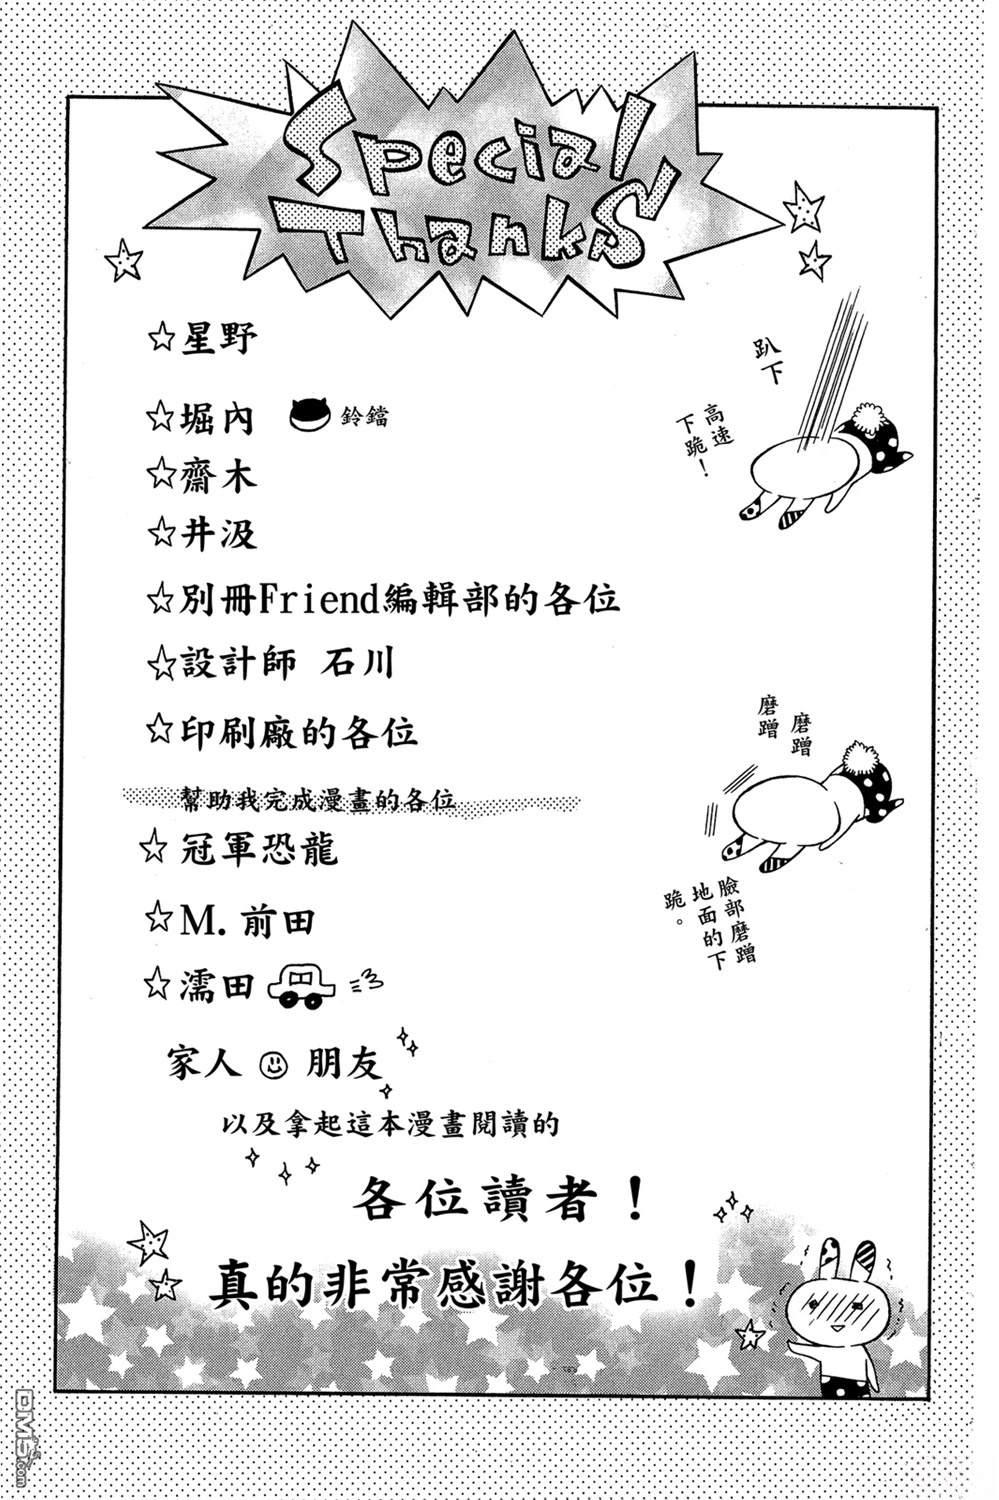 Special
Thanks
☆星野
☆堀內 鈴鐺
☆齋木
☆井汲
☆別冊Friend編輯部的各位
☆設計師 石川
☆印刷廠的各位
幫助我完成漫畫的各位
☆冠軍恐龍
☆M.前田
☆濡田
家人 朋友
以及拿起這本漫畫閱讀的
各位讀者！
真的非常感謝各位！
趴下
高速
下跪！
磨蹭
磨蹭
臉部磨蹭
地面的下
跪。
DM5.com